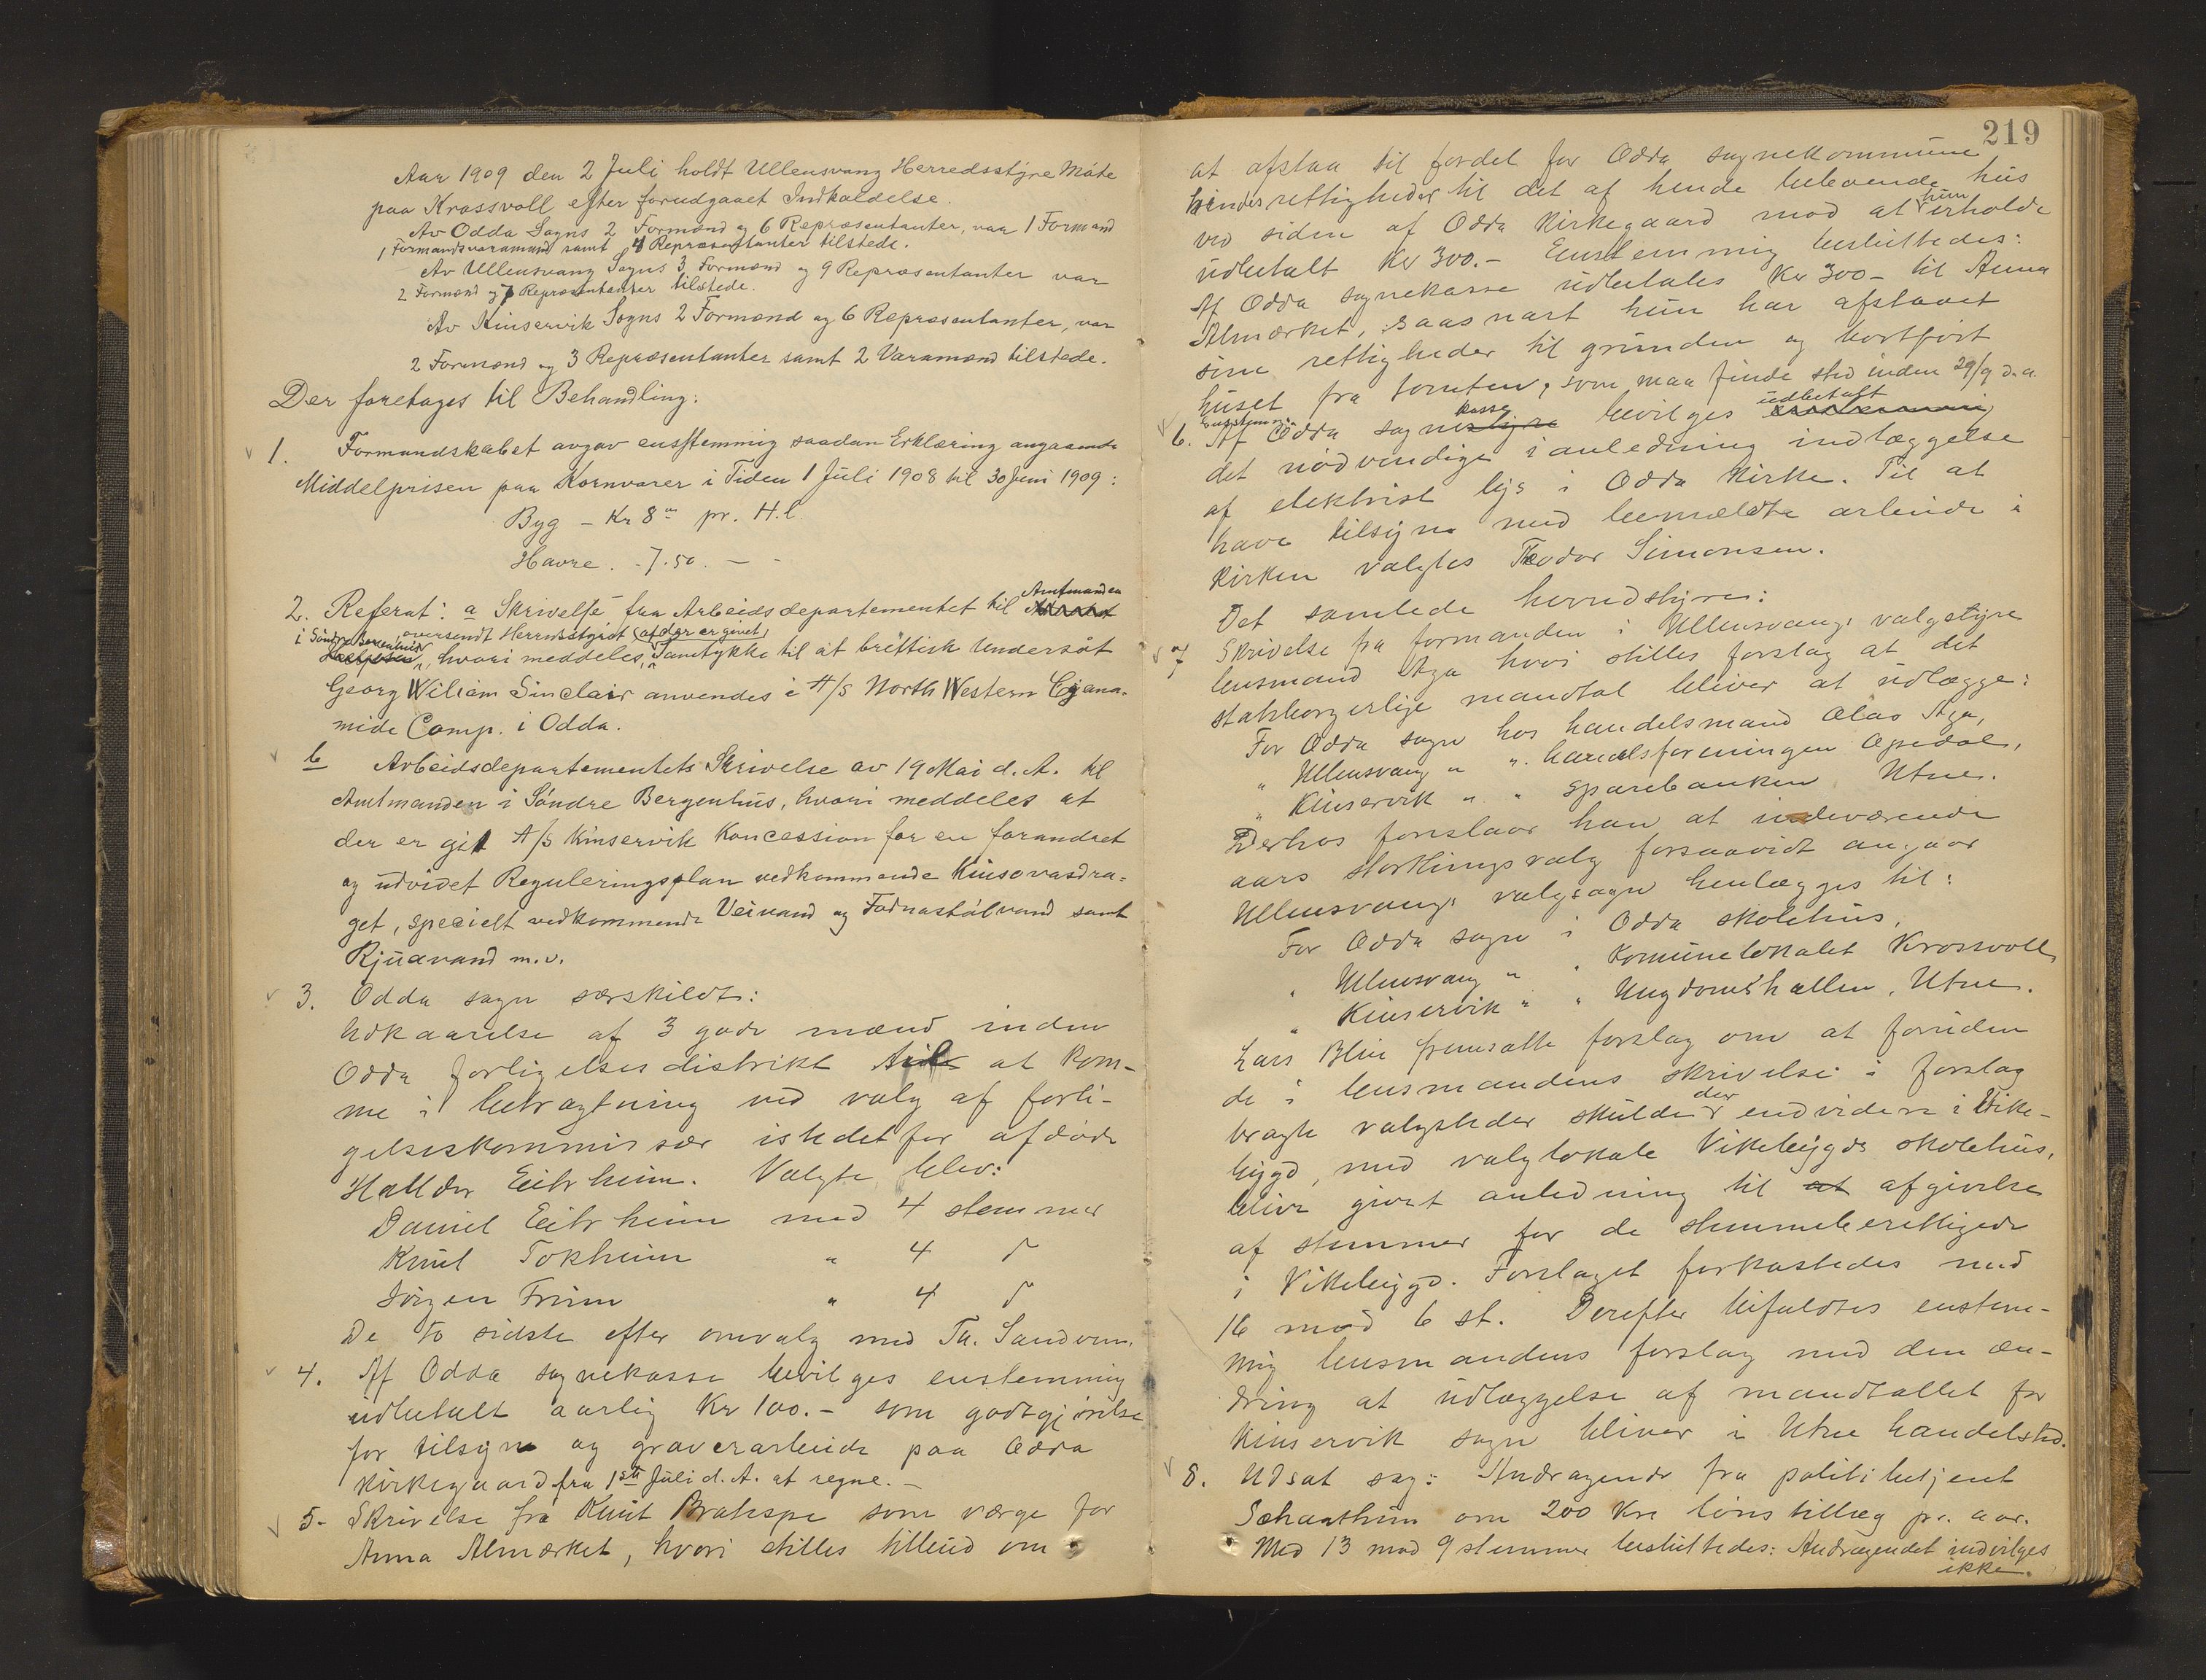 Aar 1909 den 2 Juli holdt Ullensvang Herredsstyre Möte
paa Krossvoll efter forudgaaet Indkaldelse.
Av Odda Sogns 2 Formænd og 6 Repræsentanter, var 1 Formand
1 Formandsvaramand samt 4 Repræsentanter tilstede.
Av Ullensvang Sogns 3 Formænd og 9 Repræsentanter var
2 Formænd og 7 Repræsentanter tilstede.
Av Kinservik Sogns 2 Formænd og 6 Repræsentanter, var
2 Formænd og 3 Repræsentanter samt 2 Varamænd tilstede.
Der foretages til Behandling:
1. Formandskabet avgav enstemmig saadan Erklæring angaaende
Middelprisen paa Kornvarer i Tiden 1 Juli 1908 til 30 Juni 1909:
Byg - Kr 8 00 pr. H.l.
Havre. - 7.50. - -
2. Referat: a Skrivelse fra Arbeidsdepartementet til Amtmanden
i Söndre Bergenhus, oversendt Herredsstyret (afdør er givet)
hvori meddeles, Samtykke til at brittisk Undersåt
Georg Wiliam Sinclair anvendes i A/S North Western Cyana-
mide Comp. i Odda.
b Arbeidsdepartementets Skrivelse av 19 Mai d. A. til
Amtmanden i Söndre Bergenhus, hvori meddeles at
der er git A/S Kinservik Koncession for en forandret
og udvidet Reguleringsplan vedkommende Kinsovasdra-
get, specielt vedkommende Veivand og Fodnastölvand samt
Rjuavand m.v.
3. Odda sogn særskildt:
Udkaarelse af 3 gode mænd inden
Odda forligelsesdistrikt til at kom-
me i betragtning ved valg af forli-
gelseskommissær istedetfor afdöde
Halldor Eitrheim. Valgte blev:
Daniel Eitrheim med 4 stemmer
Knut Tokheim " 4 d
Jörgen Freim " 4 d
De to sidste efter omvalg med Th. Sandven.
4. Af Odda sognekasse bevilges enstemmig
udbetalt aarlig Kr 100.- som godtgjörelse
for tilsyn og graverarbeide paa Odda
Kirkegaard fra 1ste Juli d. A. at regne.-
5- Skrivelse fra Knut Bratespe som værge for
Anna Almerket, hvori stilles tilbud om
219
at afstaa til fordel for Odda sognekommune
hendes rettigheder til det af hende beboende hus
ved siden af Odda Kirkegaard mod at hun erholde
udbetalt Kr 300.- Enstemmig besluttedes:
Af Odda sognekasse udbetales Kr 300- til Anna
Almerket, saasnart hun har afstaaet
sine rettigheder til grunden og bortfört
huset fra tomten, som maa finde sted inden 29/9 d.a.
6. Enstemmig Af Odda sognekasse bevilges udbetalt
det nödvendige i anledning indlæggelse
af elektrisk lys i Odda Kirke. Til at
have tilsyn med bemeldte arbeide i
Kirken valgtes Teodor Simonsen.
Det samlede herredstyre:
7 Skrivelse fra formanden i Ullensvangs valgstyre
lensmand Aga hvori stilles forslag at det
statsborgerlige mandtal bliver at udlægge:
For Odda sogn hos handelsmand Olav Aga,
" Ullensvang " " handelsforeningen Opedal,
" Kinservik " " Sparebanken Utne.
Derhos foreslaar han at indeværende
aars stortingsvalg forsaavidt angaar
Ullensvangs valgsogn henlægges til:
For Odda sogn i Odda skolehus,
" Ullensvang " " Komunelokalet Krossvoll,
" Kinservik " " Ungdomshallen, Utne.
Lars Blie fremsatte forslag om at foruden
de i lensmandens skrivelse i forslag
bragte valgsteder skulde der endvidere i Vike-
bygd, med valglokale Vikebygds skolehus,
blive givet anledning til at afgivelse
af stemmer for de stemmeberettigede
i Vikebygd. Forslaget forkastedes med
16 mod 6 st. Derefter bifaldtes enstem-
mig lensmandens forslag med den æn-
dring at udlæggelse af mandtallet for
Kinservik sogn bliver i Utne handelsted.
8. Udsat sag: Andragende fra politibetjent
om 200 Kr lönstillæg pr. aar.
Med 13 mod 9 stemmer besluttedes: Andragendet indvilges
ikke.